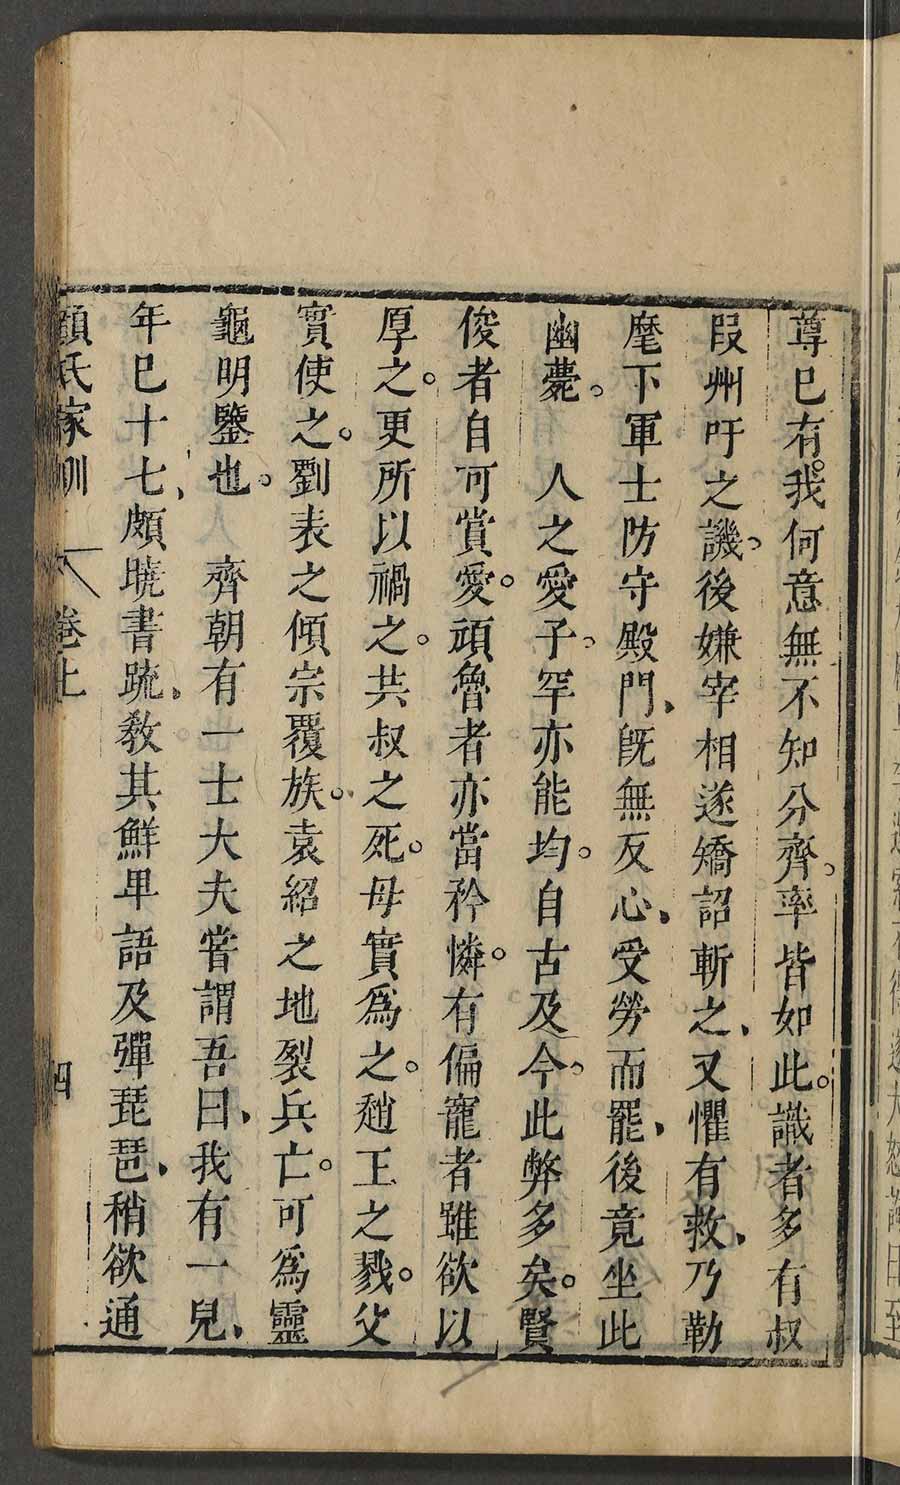 尊已有。我何意無不知分齊。率皆如此。識者多有叔
段州吁之譏。後嫌宰相遂矯詔斬之、又懼有救、乃勒
麾下軍士防守殿門、旣無反心、受勞而罷、後竟坐此
幽薨。　人之愛子。罕亦能均。自古及今。此弊多矣。賢
俊者自可賞愛。頑魯者亦當矜憐。有偏寵者雖欲以
厚之。更所以禍之。共叔之死。母實爲之。趙王之戮。父
實使之。劉表之傾宗覆族。袁紹之地裂兵亡。可爲靈
龜明鑒也。　齊朝有一士大夫嘗謂吾曰、我有一兒、
年巳十七、頗曉書䟽、敎其鮮卑語及彈琵琶、稍欲通
顔氏家訓　卷上　四